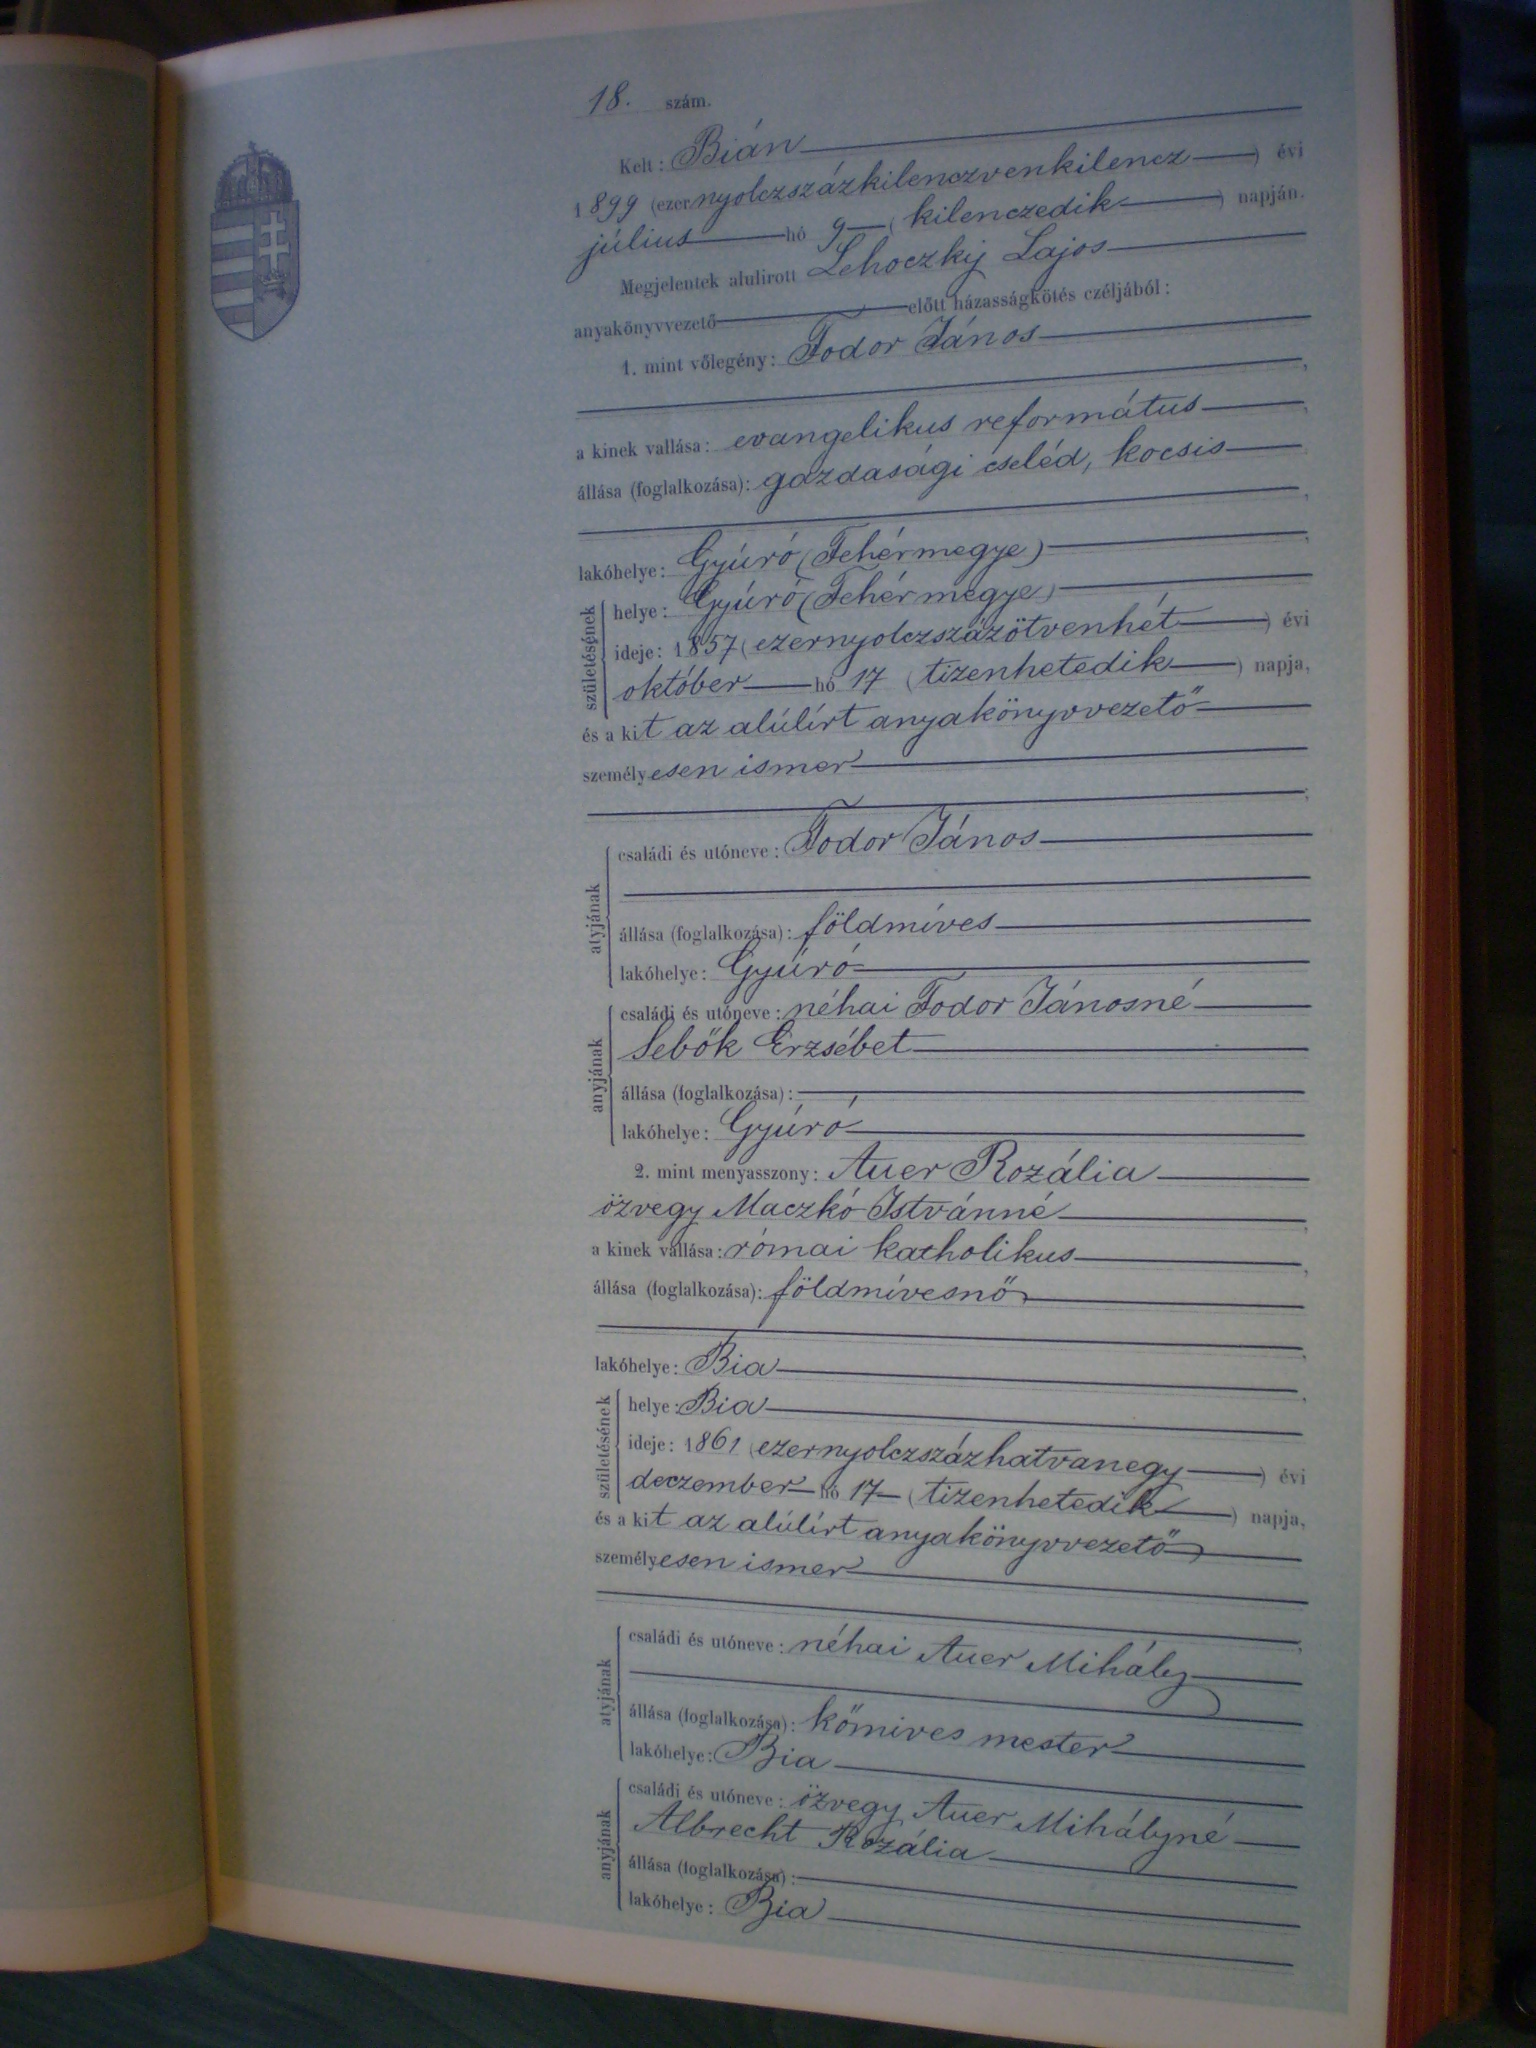 18. szám.
Kelt: Bián
1899 (ezernyolczszázkilenczvenkilencz) évi
július hó 9 (kilenczedik) napján.
Megjelentek alulirott Lehoczky Lajos
anyakönyvvezető előtt házasságkötés czéljából:
1. mint vőlegény: Fodor János
a kinek vallása: evangelikus református,
állása (foglalkozása): gazdasági cseléd, kocsis
lakóhelye: Gyúró (Fehérmegye)
születésének
helye: Gyúró (Fehérmegye)
ideje: 1857 (ezernyolczszázötvenhét) évi
október hó 17 (tizenhetedik) napja,
és a kit az alúlírt anyakönyvvezető
személyesen ismer
atyjának
családi és utóneve: Fodor János
állása (foglalkozása): földmíves
lakóhelye: Gyúró
anyjának
családi és utóneve: néhai Fodor Jánosné
Sebők Erzsébet
állása (foglalkozása):
lakóhelye: Gyúró
2. mint menyasszony: Auer Rozália
özvegy Maczkó Istvánné,
a kinek vallása: római katholikus,
állása (foglalkozása): földmívesnő
lakóhelye: Bia
születésének
helye: Bia
ideje: 1861 (ezernyolczszázhatvanegy) évi
deczember hó 17 (tizenhetedik) napja,
és a kit az alúlírt anyakönyvvezető
személyesen ismer
atyjának
családi és utóneve: néhai Auer Mihály
állása (foglalkozása): kőmíves mester
lakóhelye: Bia
anyjának
családi és utóneve: özvegy Auer Mihályné
Albrecht Rozália
állása (foglalkozása):
lakóhelye: Bia